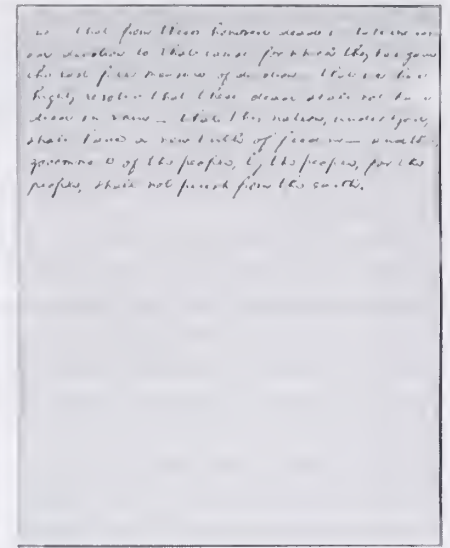 us — that from these honored dead we take increas
ed devotion to that cause for which they here gave
the last full measure of devotion — that we here
highly resolve that these dead shall not have
died in vain — that this nation, under God,
shall have a new birth of freedom — and that
government of the people, by the people, for the
people, shall not perish from the earth.